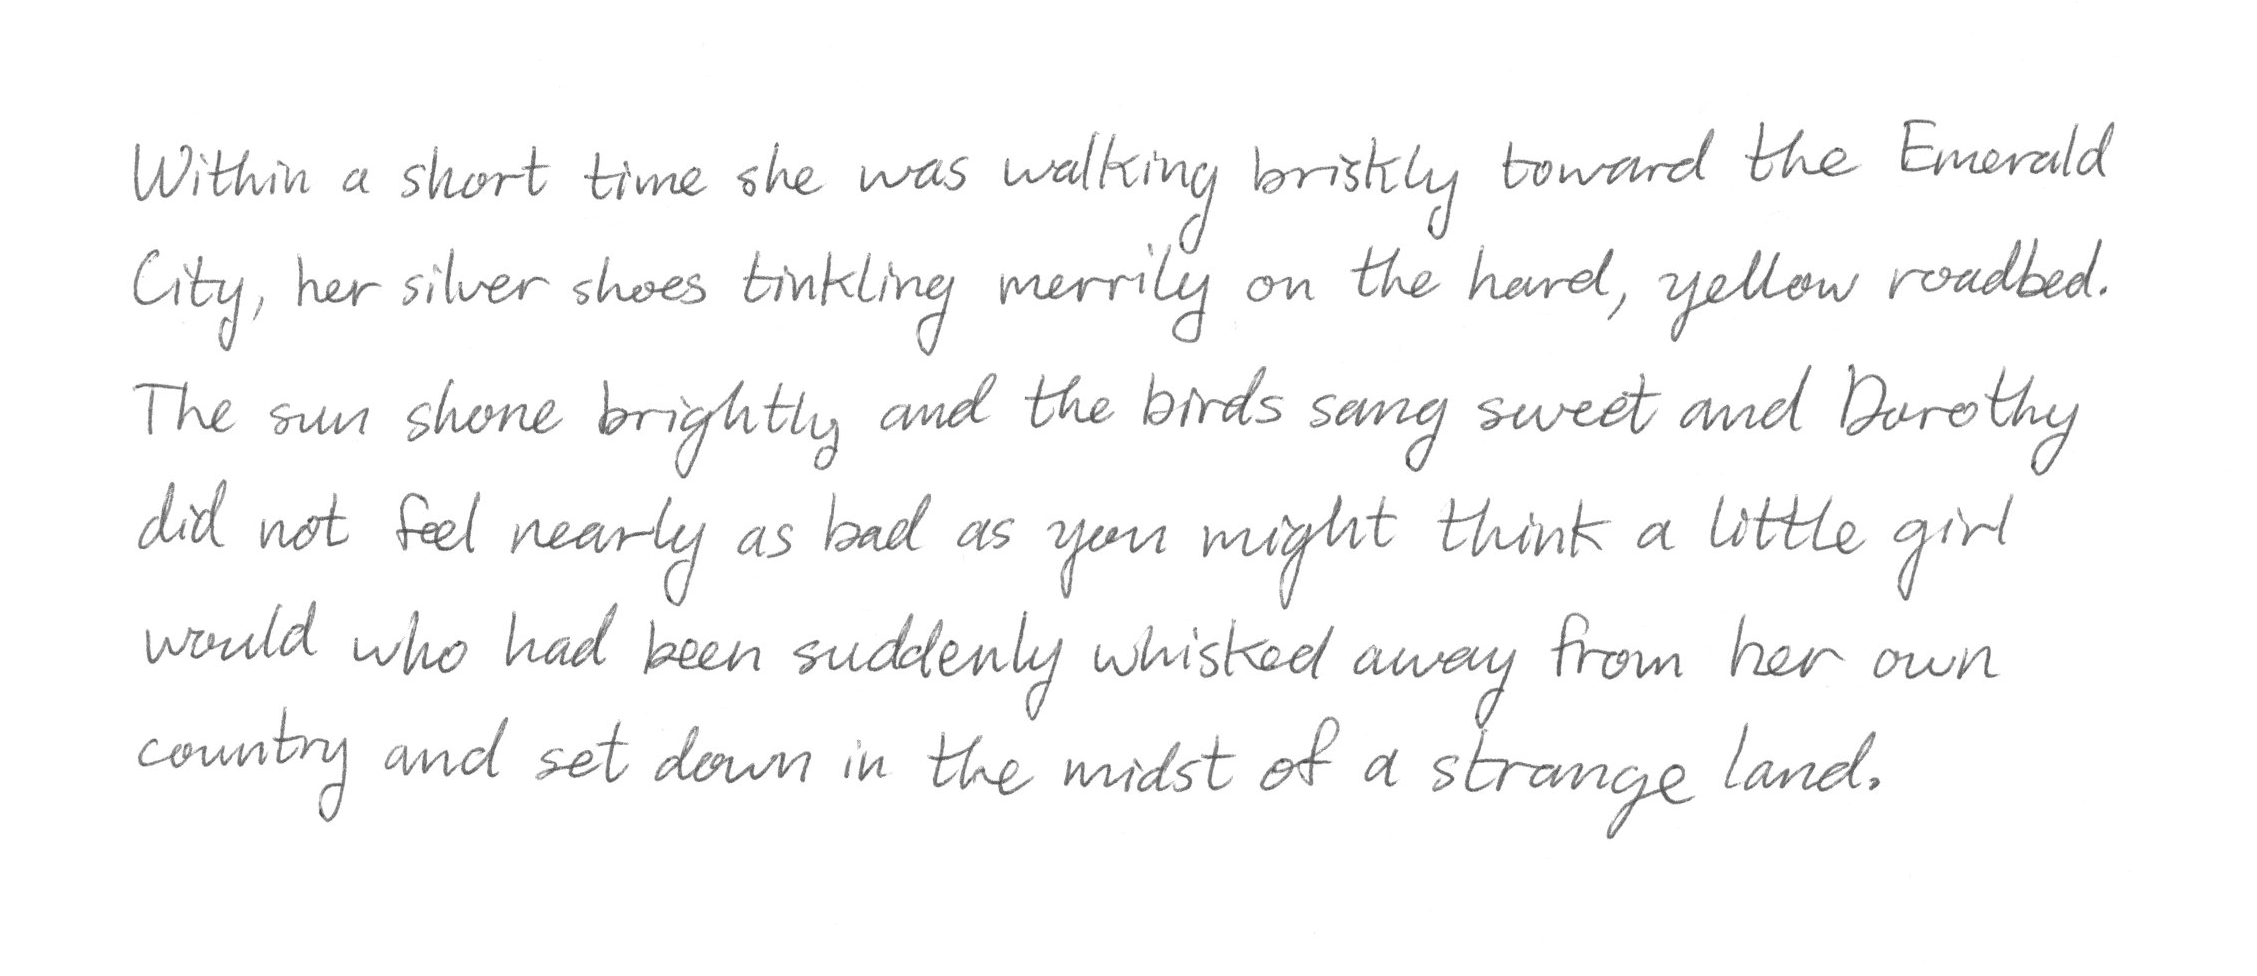 Within a short time she was walking briskly toward the Emerald
City, her silver shoes tinkling merrily on the hard, yellow roadbed.
The sun shone brightly and the birds sang sweet and Dorothy
did not feel nearly as bad as you might think a little girl
would who had been suddenly whisked away from her own
country and set down in the midst of a strange land.